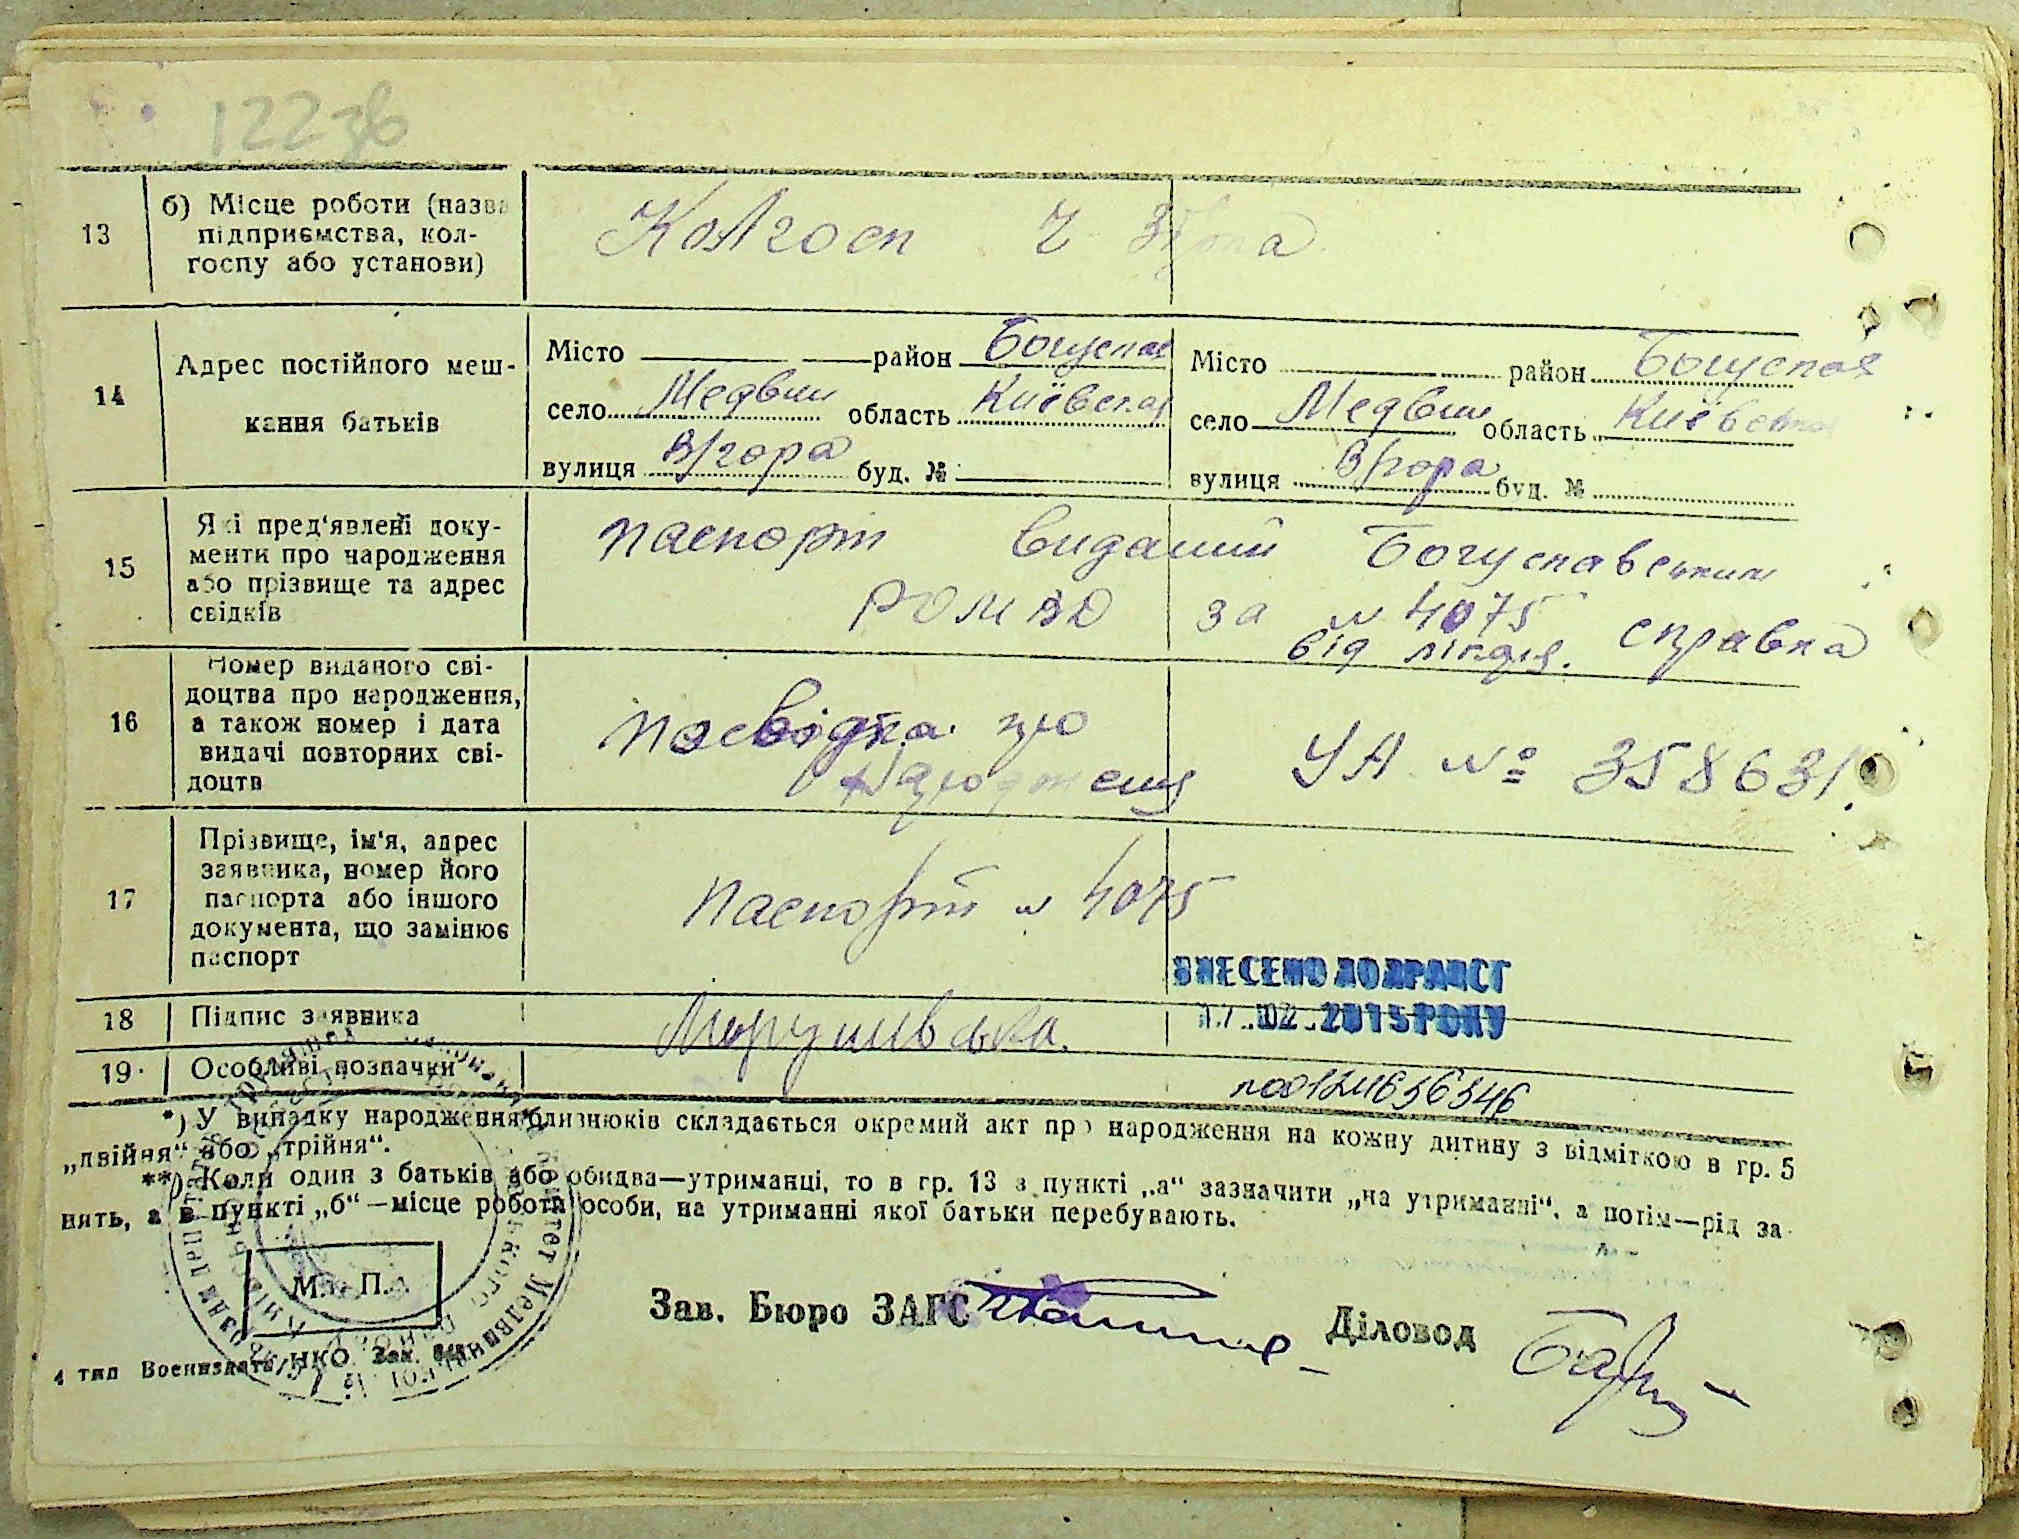 122зв
13 б) Місце роботи (назва підприємства, кол-
госпу або установи)
Колгосп
14 Адрес постійного меш-
кання батьків
Місто район Богуслав
село Медвин область Київська
вулиця В/гора буд. №
Місто район Богуслав
село Медвин область Київська
вулиця В/гора буд. №
15 Які пред'явлені доку-
менти про народження
або прізвище та адрес
свідків
паспорт виданий Богуславським
за № 4075 справка
від
16 Номер виданого сві-
доцтва про народження,
а також номер і дата
видачі повторних сві-
доцтв
посвідка про
УА № 358631.
17 Прізвище, ім'я, адрес
заявника, номер його
паспорта або іншого
документа, що замінює
паспорт
Паспорт № 4075
ВНЕСЕНО ДО ДРАЦСГ
17.02.2015 РОКУ
18 Підпис заявника
19 Особливі позначки
*) У випадку народження близнюків складається окремий акт про народження на кожну дитину з відміткою в гр. 5
„двійня“ або „трійня“.
**) Коли один з батьків або обидва—утриманці, то в гр. 13 в пункті „а“ зазначити „на утриманні“, а потім—рід за-
нять, а в пункті „б“—місце роботи особи, на утриманні якої батьки перебувають.
М. П.
Зав. Бюро ЗАГС
Діловод
4 тип Воениздата НКО Зак.